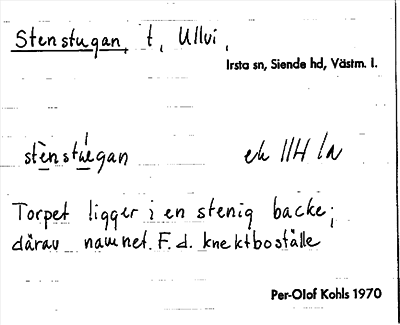 Stenstugan, t, Ullvi,
Irsta sn, Siende hd, Västm. l.
stènstúegan ek 11H
Torpet ligger i en stenig backe;
därav namnet. F.d. knektboställe
Per-Olof Kohls 1970